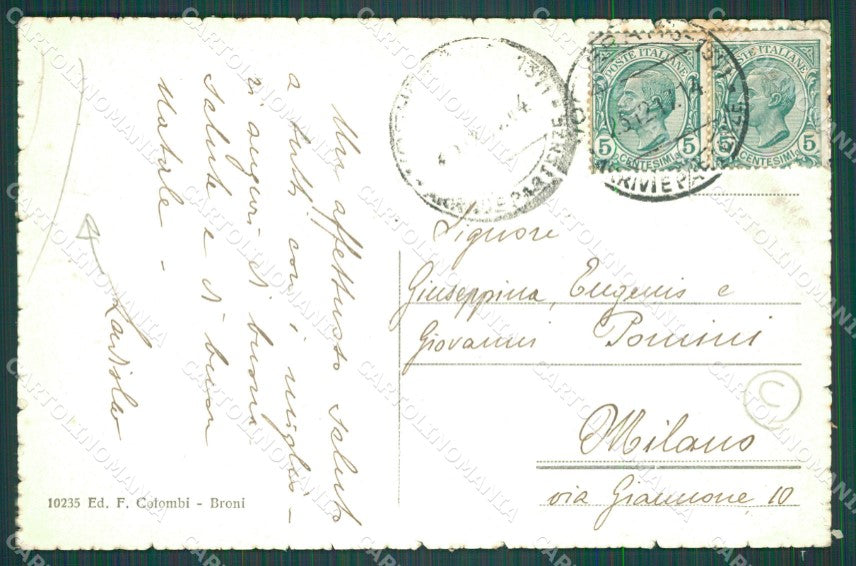 Un affettuoso saluto
a tutti con i migliori
auguri di buona
salute e di buon
Natale -
Ladislao
10235 Ed. F. Colombi - Broni
POSTE ITALIANE
5 CENTESIMI 5
POSTE ITALIANE
5 CENTESIMI 5
ARRIVI E PARTENZE
ARRIVI E PARTENZE
Signore
Giuseppina, Eugenio e
Giovanni Pomini
Milano
via Giannone 10
C
CARTOLINOMANIA